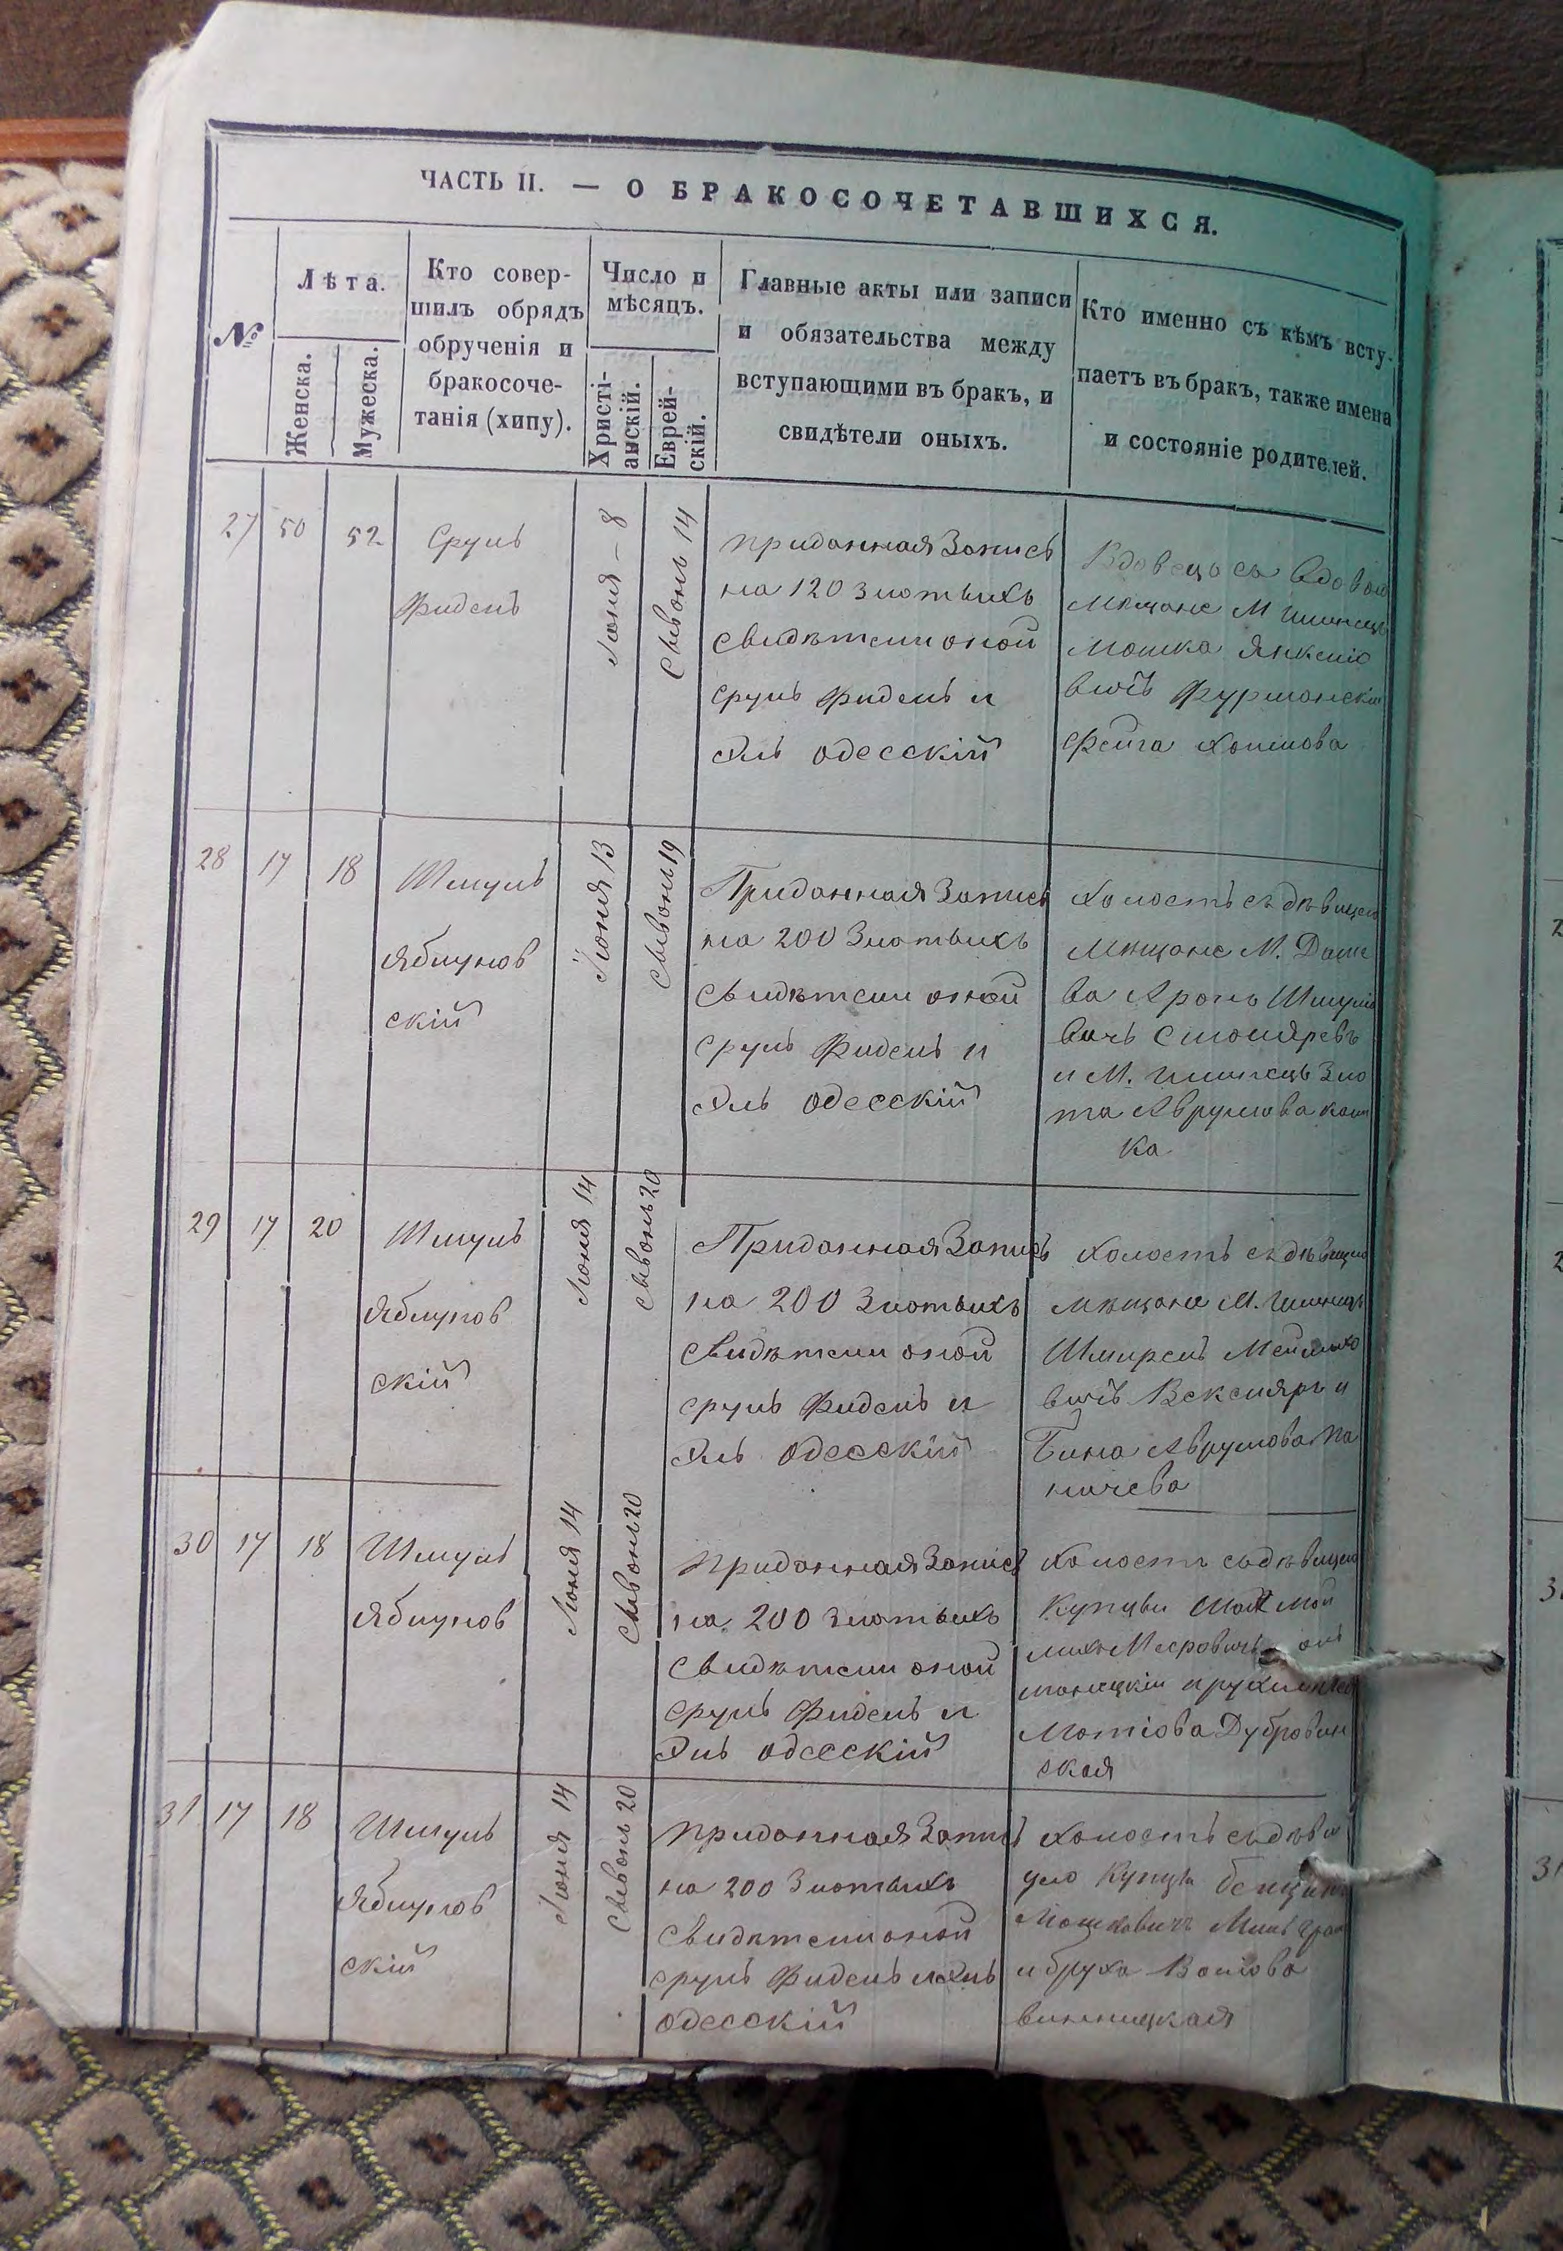 ЧАСТЬ II. — О БРАКОСОЧЕТАВШИХСЯ.
№
Лѣта.
Женска.
Мужеска.
Кто совер-
шилъ обрядъ
обрученія и
бракосоче-
танія (хипу).
Число и
мѣсяцъ.
Христі-
анскій.
Еврей-
скій.
Главные акты или записи
и обязательства между
вступающими въ бракъ, и
свидѣтели оныхъ.
Кто именно съ кѣмъ всту-
паетъ въ бракъ, также имена
и состояніе родителей.
27 50 52
Сруль
Фидель
Іюня – 8
Сывонь 14
приданная Запись
на 120 злотыхъ
свидѣтели оной
сруль Фидель и
Эль одесскій
Вдовецъ съ Вдовою
Мѣщане М
Мошко Янкелio
вичъ Фурманскій
Фейга Хаимова
28 17 18
Шмуль
Яблунов
скій
Іюня 13
Сывонь 19
Приданная Запись
на 200 Злотыхъ
Свидѣтели оной
сруль Фидель и
Эль одесскій
Холостъ съ дѣвицею
Мѣщане М. Даше
ва Аронъ Шмулio
вичъ Столяревъ
и М. Зло
та Аврумова
ка
29 17 20
Шмуль
Яблунов
скій
Іюня 14
Сывонь 20
Приданная Запись
на 200 Злотыхъ
Свидѣтели оной
сруль Фидель и
Эль Одесскій
Холостъ съ дѣвицею
Мѣщане М.
вичъ Векслярь и
Бина Аврумова Па
ничева
30 17 18
Шмуль
Яблунов
Іюня 14
Сывонь 20
приданная Запись
на 200 Злотыхъ
Свидѣтели оной
сруль Фидель и
Эль одесскій
Холостъ съ дѣвицею
Купцы
Мотіова Дубровин
ская
31 17 18
Шмуль
Яблунов
скій
Іюня 14
Сывонь 20
приданная Запись
на 200 Злотыхъ
Свидѣтели оной
сруль Фидель и Эль
одесскій
Холостъ съ дѣви
цею Купцы
Мошковичъ
и бруха Волiова
винницкая